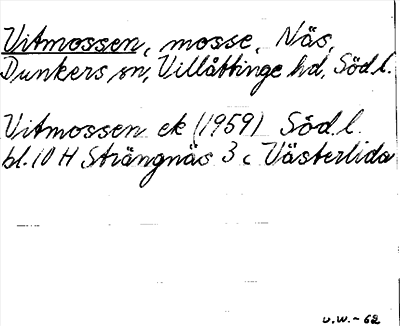 Vitmossen, mosse, Näs,
Dunkers sn, Villåttinge hd, Söd.l.
Vitmossen ek (1959) Söd.l.
bl. 10 H Strängnäs 3 c Västerlida
v.W.-62